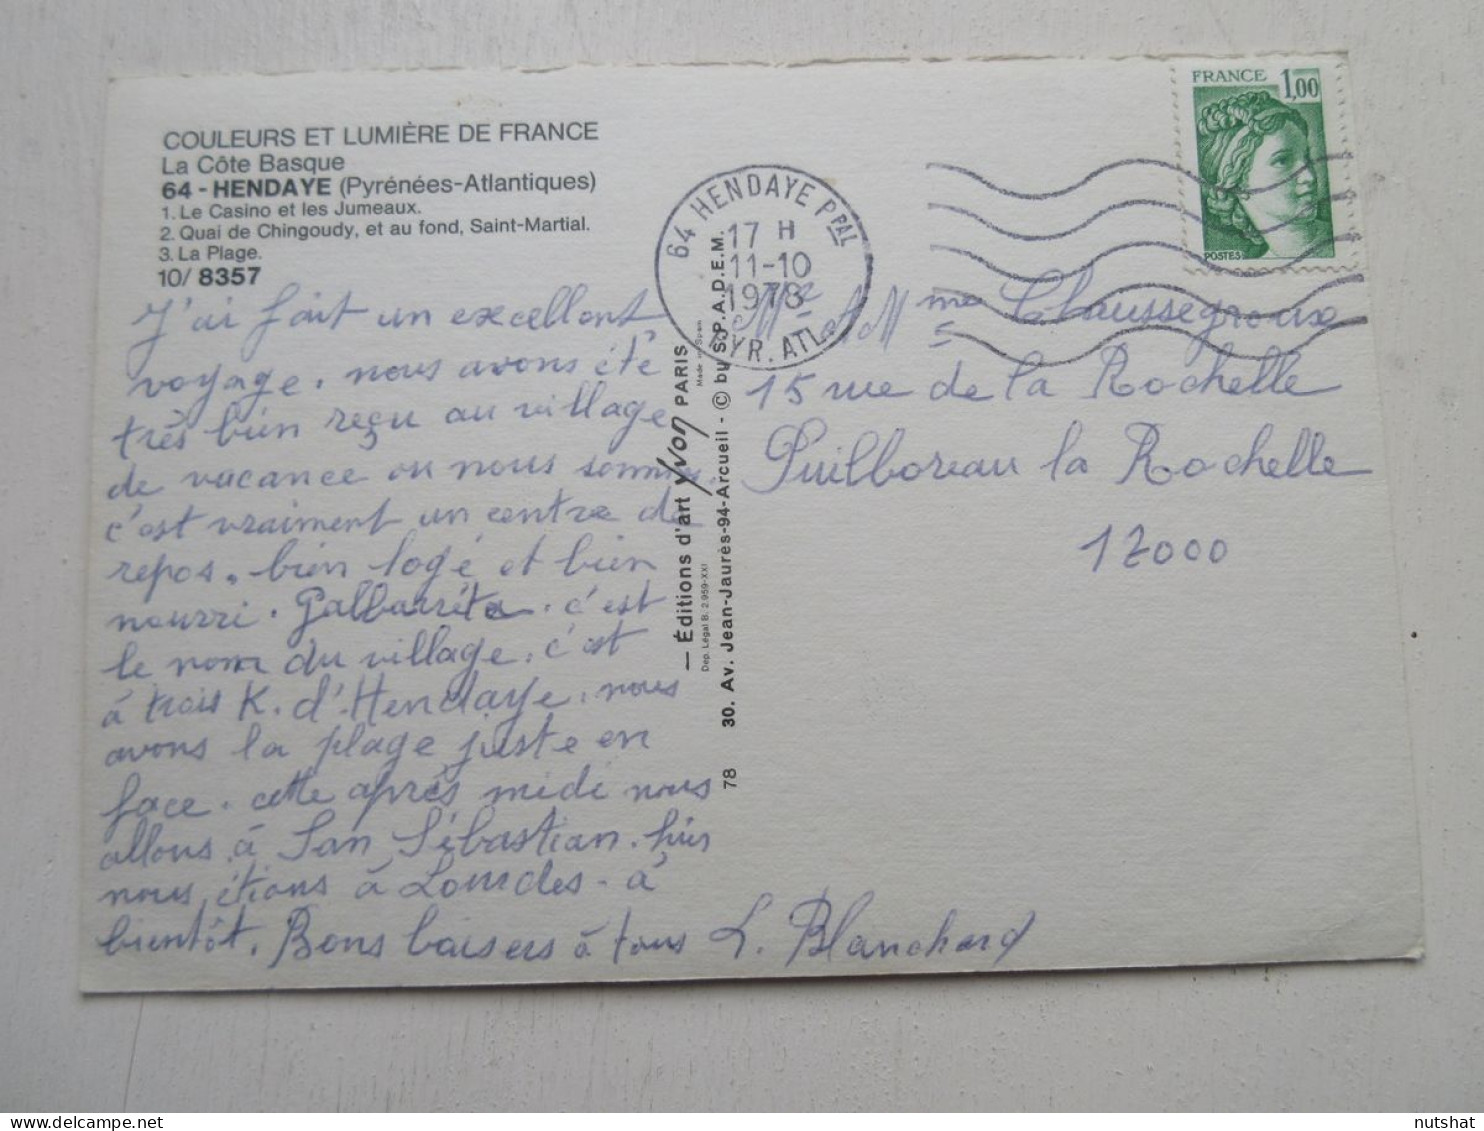 COULEURS ET LUMIÈRE DE FRANCE
La Côte Basque
64 - HENDAYE (Pyrénées-Atlantiques)
1. Le Casino et les Jumeaux.
2. Quai de Chingoudy, et au fond, Saint-Martial.
3. La Plage.
10/ 8357
J'ai fait un excellent
voyage. nous avons été
très bien reçu au village
de vacance ou nous sommes.
c'est vraiment un centre de
repos. bien logé et bien
nourri. Galbarrita. c'est
le nom du village. c'est
à trois K. d'Hendaye. nous
avons la plage juste en
face. cette après midi nous
allons à San Sébastian. hier
nous étions à Lourdes. à
bientôt. Bons baisers à tous L. Blanchard
— Éditions d'art Yvon PARIS
Made in Spain
Dep. Légal B. 2.959-XXI
30. Av. Jean-Jaurès-94-Arcueil - © by S.P.A.D.E.M.
78
64 HENDAYE PPAL
17 H
11-10
1978
PYR. ATL.
FRANCE 1,00
POSTES
Mr et Mme Chaussegroux
15 rue de la Rochelle
Puilboreau la Rochelle
17000
nutshat